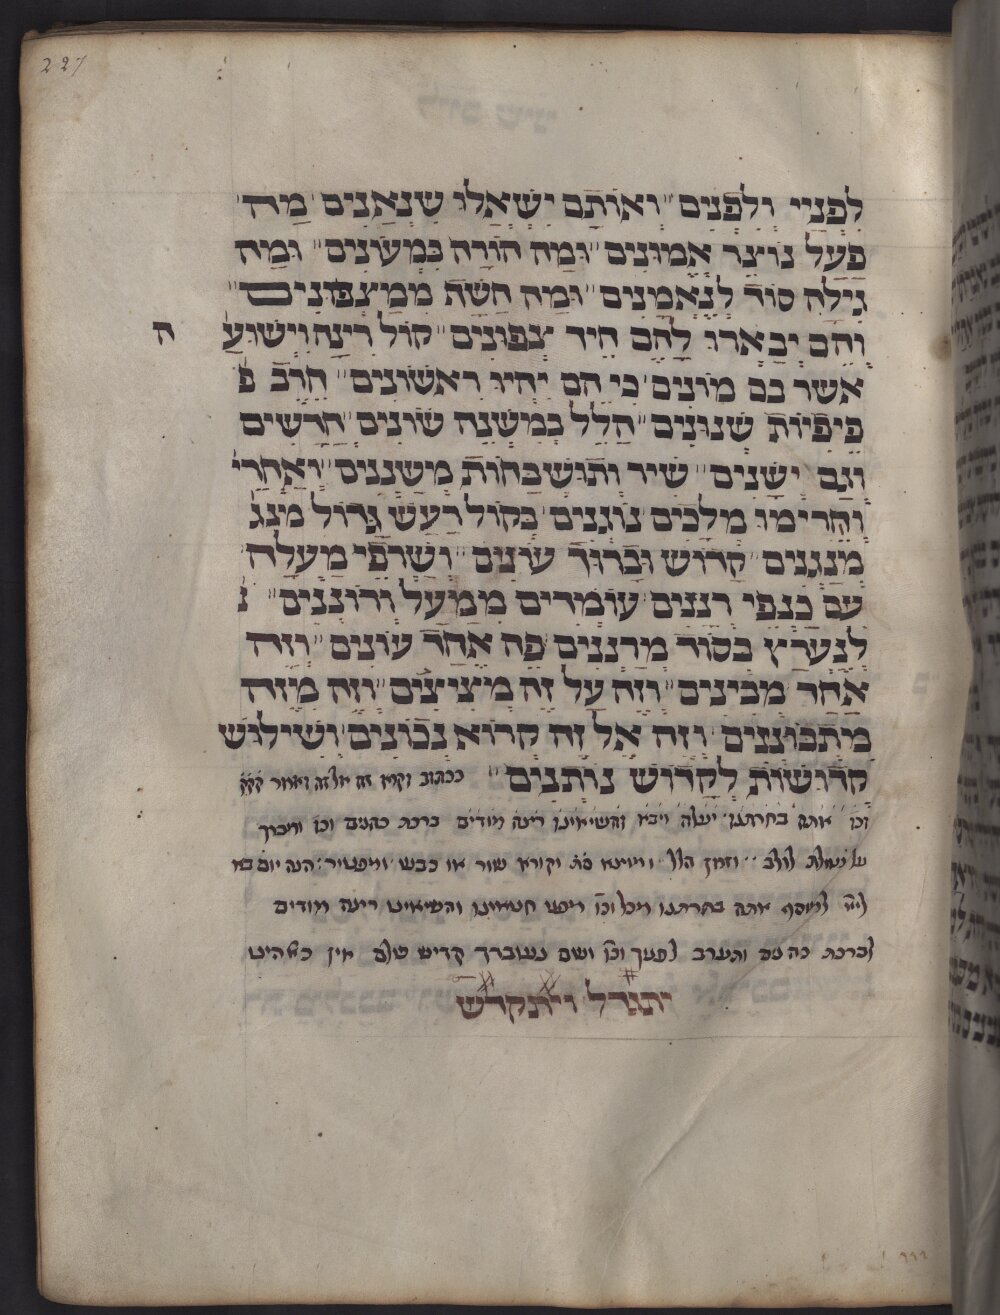 227
לִפְנַיי וְלִפְנִים וְאוֹתָם יִשְׁאֲלוּ שִׁנְאַנִים מַה
פָּעַל נוֹצֵר אֱמוּנִים וּמַה הוֹרָה בִּמְעוֹנִים וּמַה
גִילָה סוֹד לְנֶאֱמָנִים וּמַה חָשַׂף מִמַּצְפּוּנִים
וְהֵם יְבָאֲרוּ לָהֶם חִיד צְפוּנִים קוֹל רִינָה וִישׁוּעָ ה
אשר בם מונים כי הם יהיו ראשונים הרב פ
פיפיות שנונים הלל במשנה שונים חרשים
וגם ישנים שיר ותושבחות משננים ואחרי
והרימו מלכים נוגנים בקול רעש גדול מנג
מנגנים קדוש וברוך עונים ושרפי מעלה
עם כנפי רננים עומדים ממעל ורוננים נ
לנערץ בסוד מרננים פה אחד עונים וזה
אחר מבינים וזה על זה מציצים וזה מזה
מתבוננים וזה אל זה קרוא נכונים ושילוש
קדושות לקדוש נותנים ככתוב וקרא זה אל זה ואמר קקק
וכו אתה בחרתנו יעלה ויבא והשיאינו רינה מודים ברכת כהנים וכו ומברך
על נטילת לולב וגומ׳ן הלל ומוציא סת וקורא שור או כבש ומפטיר הנה יום בא
ליי׳ למוסף אתה בחרתנו מכל וכו מפני חטאינו והשיאינו רינה מודים
לברכת כהנים ותערב לפניך וכו ושים בעוברך קדיש שלם אין כאלהינו
יתגדל ויתקדש